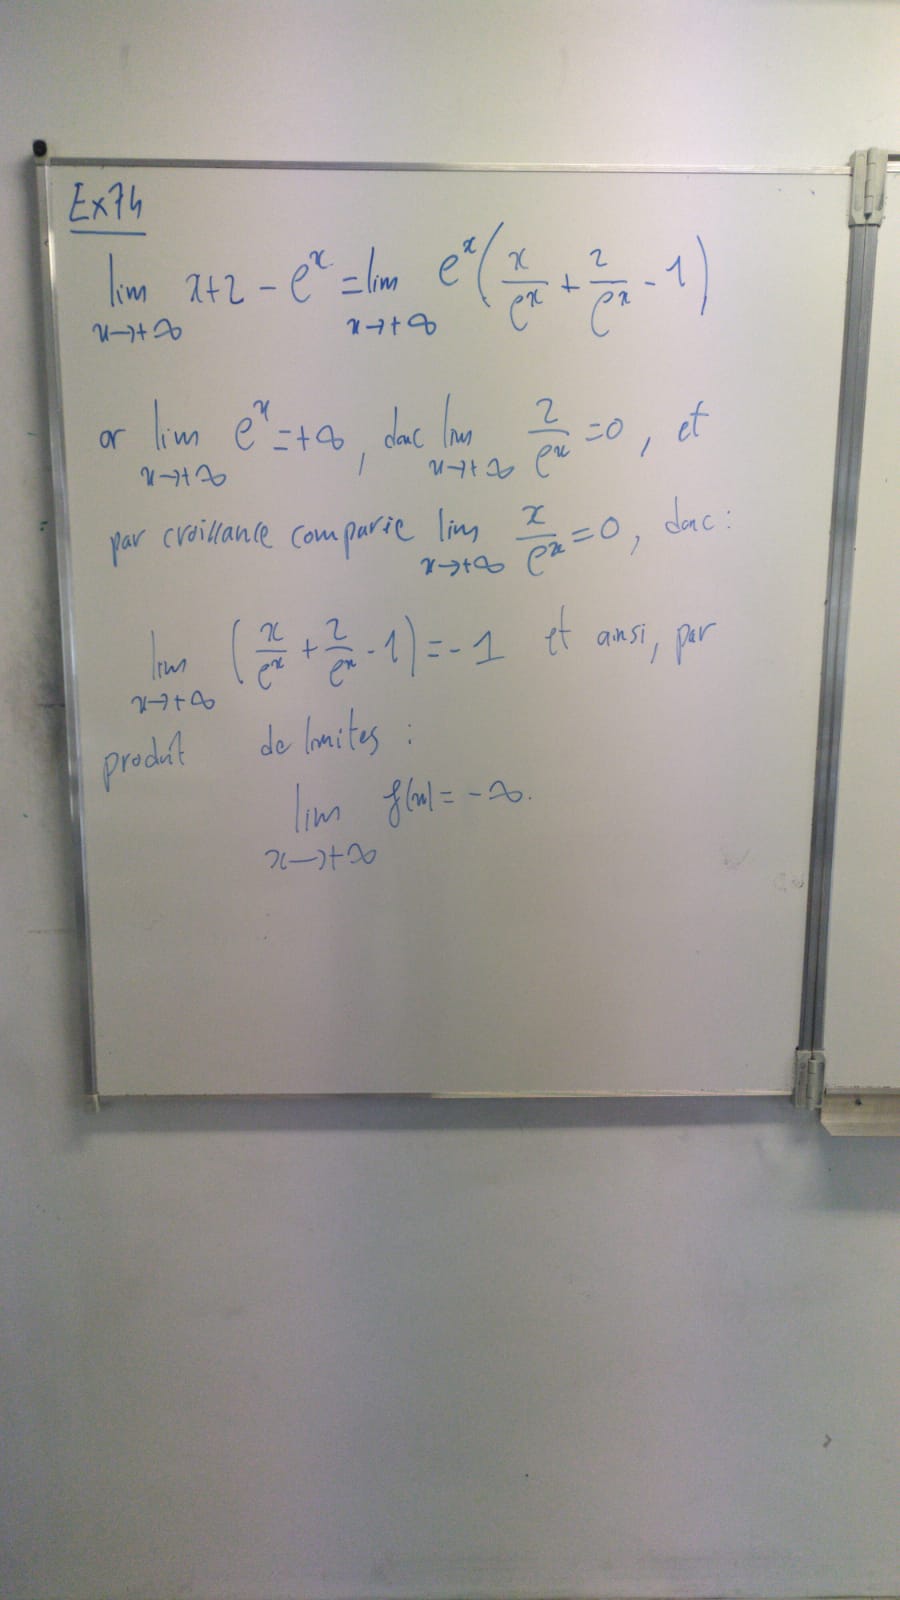 Ex74
lim x+2 - e^x = lim e^x (x/e^x + 2/e^x - 1)
x→+∞ x→+∞
or lim e^x = +∞, donc lim 2/e^x = 0, et
x→+∞ x→+∞
par croissance comparée lim x/e^x = 0, donc :
x→+∞
lim (x/e^x + 2/e^x - 1) = -1 et ainsi, par
x→+∞
produit de limites :
lim f(x) = -∞.
x→+∞